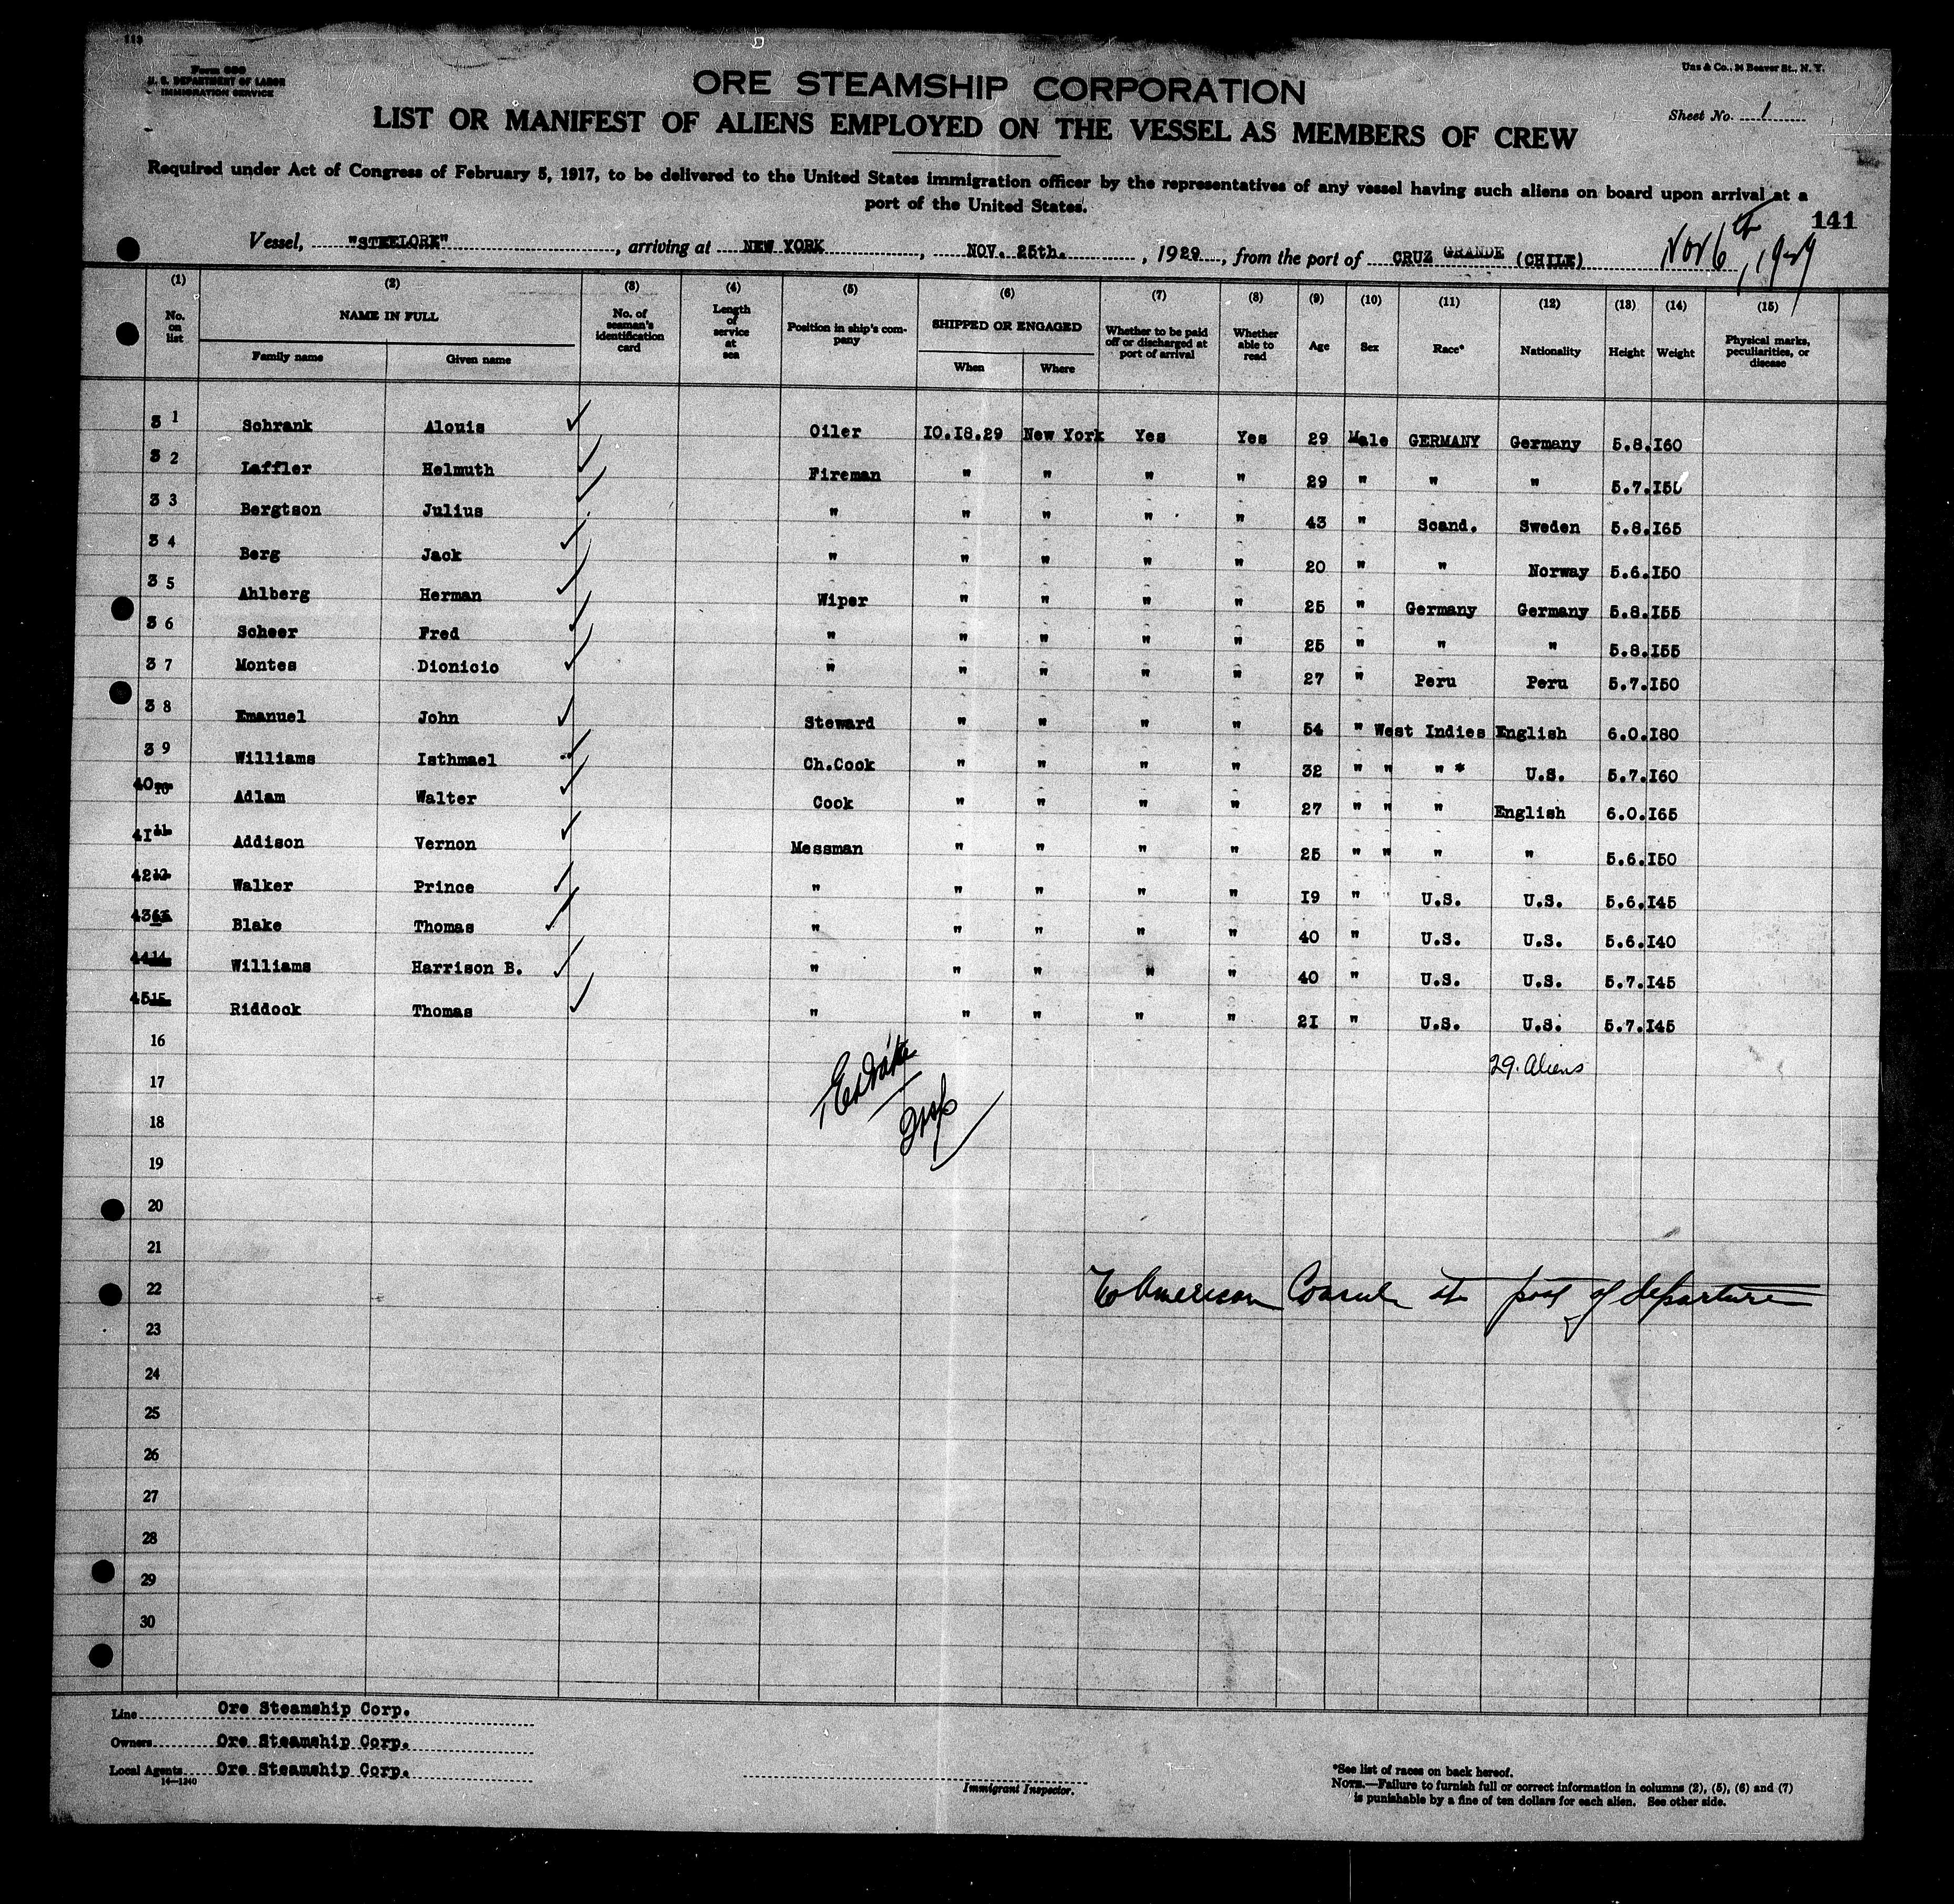 113
Form 680
U. S. DEPARTMENT OF LABOR
IMMIGRATION SERVICE
Unz & Co., 24 Beaver St., N. Y.
ORE STEAMSHIP CORPORATION
Sheet No. 1
LIST OR MANIFEST OF ALIENS EMPLOYED ON THE VESSEL AS MEMBERS OF CREW
Required under Act of Congress of February 5, 1917, to be delivered to the United States immigration officer by the representatives of any vessel having such aliens on board upon arrival at a
port of the United States.
141
Vessel, "STEELORE", arriving at NEW YORK, NOV. 25th., 1929, from the port of CRUZ GRANDE (CHILE) Nov 6th, 1929
(1) (2) (3) (4) (5) (6) (7) (8) (9) (10) (11) (12) (13) (14) (15)
No. on list NAME IN FULL No. of seaman's identification card Length of service at sea Position in ship's company SHIPPED OR ENGAGED Whether to be paid off or discharged at port of arrival Whether able to read Age Sex Race* Nationality Height Weight Physical marks, peculiarities, or disease
Family name Given name When Where
3 1 Schrank Alouis Oiler 10.18.29 New York Yes Yes 29 Male GERMANY Germany 5.8. 160
3 2 Laffler Helmuth Fireman " " " " 29 " " " 5.7. 150
3 3 Bergtson Julius " " " " " 43 " Scand. Sweden 5.8. 165
3 4 Berg Jack " " " " " 20 " " Norway 5.6. 150
3 5 Ahlberg Herman Wiper " " " " 25 " Germany Germany 5.8. 155
3 6 Scheer Fred " " " " " 25 " " " 5.8. 155
3 7 Montes Dionicio " " " " " 27 " Peru Peru 5.7. 150
3 8 Emanuel John Steward " " " " 54 " West Indies English 6.0. 180
3 9 Williams Isthmael Ch.Cook " " " " 32 " " " * U.S. 5.7. 160
40 10 Adlam Walter Cook " " " " 27 " " " English 6.0. 165
41 11 Addison Vernon Messman " " " " 25 " " " " 5.6. 150
42 12 Walker Prince " " " " " 19 " U.S. U.S. 5.6. 145
43 13 Blake Thomas " " " " " 40 " U.S. U.S. 5.6. 140
44 14 Williams Harrison B. " " " " " 40 " U.S. U.S. 5.7. 145
45 15 Riddock Thomas " " " " " 21 " U.S. U.S. 5.7. 145
16
29. Aliens
17
18
19
20
21
22
No American Consul at port of departure
23
24
25
26
27
28
29
30
Line Ore Steamship Corp.
Owners Ore Steamship Corp.
Local Agents Ore Steamship Corp.
14—1240
Immigrant Inspector.
*See list of races on back hereof.
NOTE.—Failure to furnish full or correct information in columns (2), (5), (6) and (7)
is punishable by a fine of ten dollars for each alien. See other side.